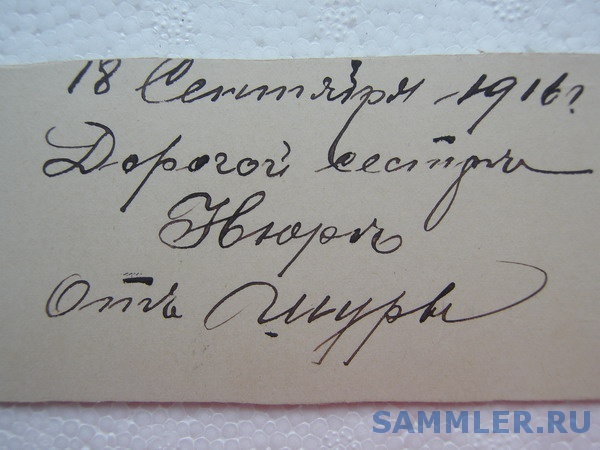 18 Сентября 1916 г.
Дорогой сестрѣ
Нюрѣ
Отъ Шуры
SAMMLER.RU